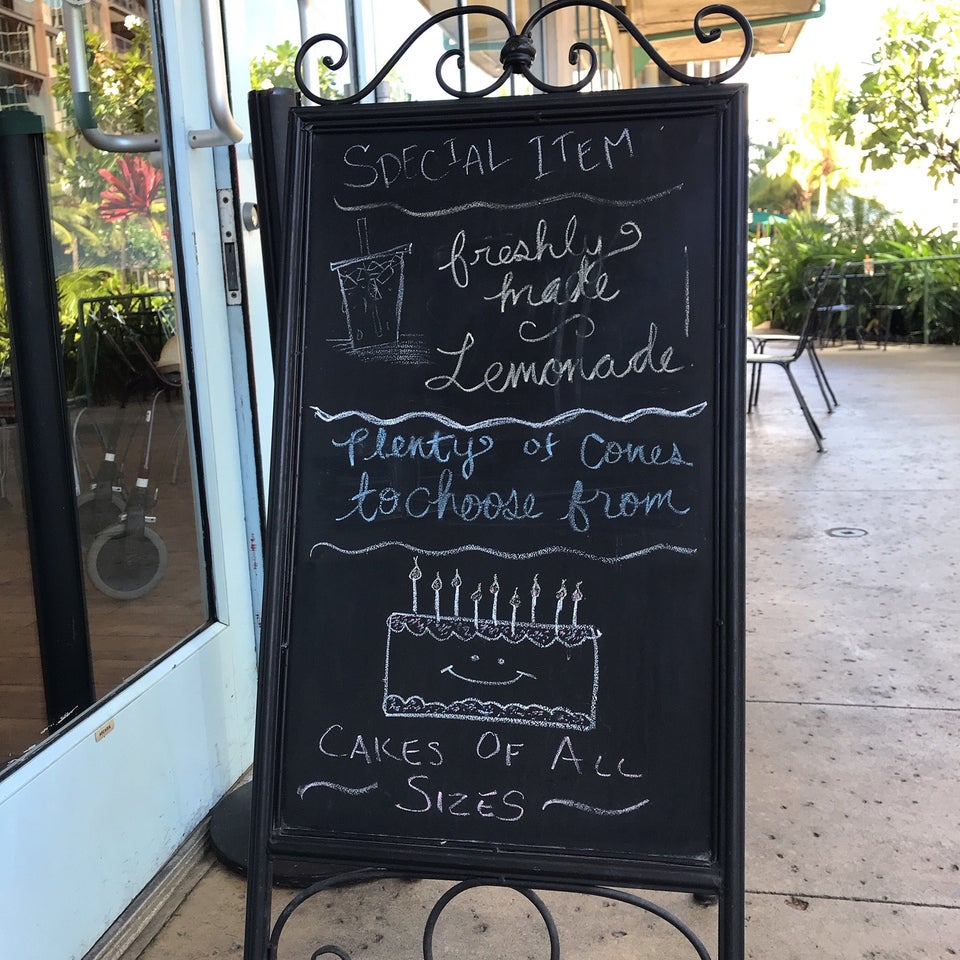 SPECIAL ITEM
freshly
made
Lemonade
Plenty of Cones
to choose from
CAKES OF ALL
SIZES